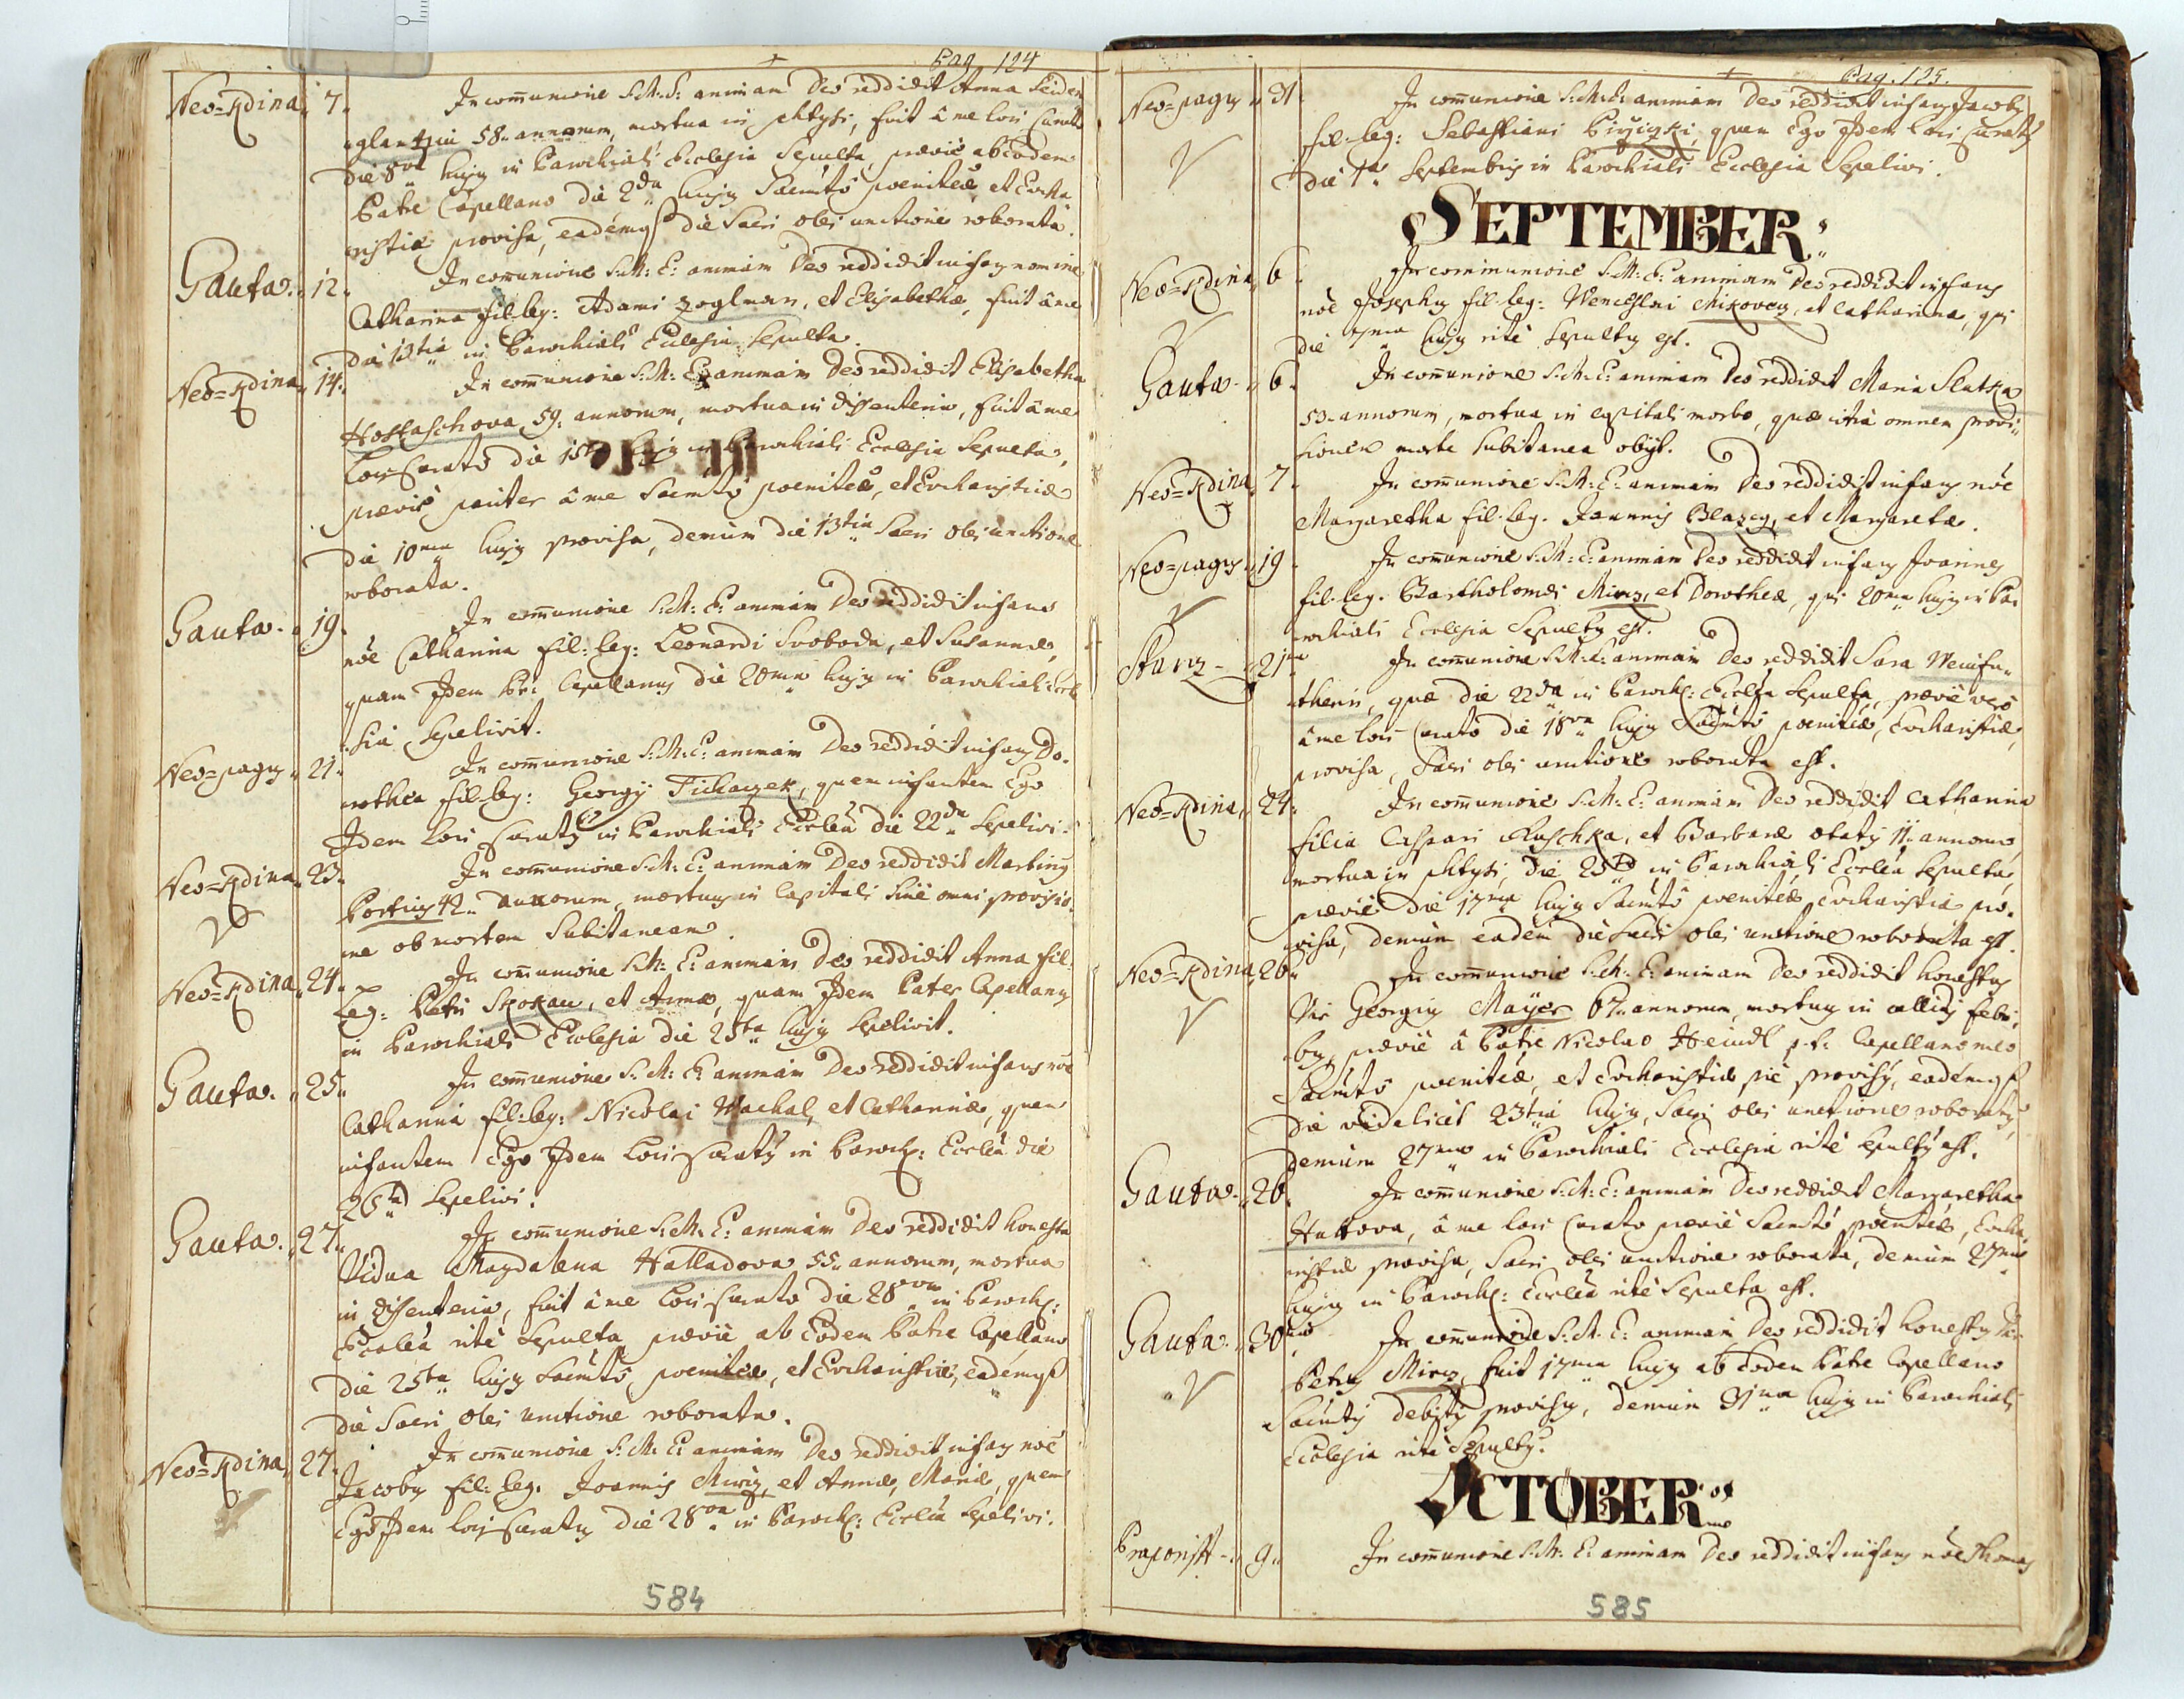 Pag. 124
Neo=Kdina. 7. In com̄unione S: M: E: animam Deo reddidit Anna Seiden
glantzin 58. annorum, mortua in phtysi, fuit â me loci Curato
die 8va hujus in Parochiali Ecclesia Sepulta, prævie ab eodem
Patre Capellano die 2da hujus Sacm̃to pœnitẽæ et Eucha
ristiæ provisa, eademq die Sacri olei unctione roborata.
Gauta. 12. In com̄unione S: M: E: animam Deo reddidit infans nomine
Catharina fil. leg: Adami Zoglman, et Elisabethæ, fuit â me
die 13tia in Parochiali Ecclesia Sepulta.
Neo=Kdina 14. In com̄unione S: M: E: animam Deo reddidit Elisabetha
Hoskaschova, 59. annorum, mortua in dissenteria, fuit â me
loci Curato die 15ta hujus in Parochiali Ecclesia Sepulta,
prævie pariter â me Sacm̃to pœnitẽæ, et Eucharistiæ
die 10ma hujus provisa, demum die 13tia Sacri olei unctione
roborata.
Gauta. 19. In com̄unione S: M: E: animam Deo reddidit infans
nõe Catharina fil: leg: Leonardi Svoboda, et Susannæ,
quam Idem Pr: Capellanus die 20ma hujus in Parochiali Eccle
sia Sepelivit.
Neo=pagus 21. In com̄unione S: M: E: animam Deo reddidit infans Do.
rothea fil. leg: Georgij Tichaczek, quem infantem Ego
Idem loci Curatus in Parochiali Ecclẽa die 22da Sepelivi.
Neo=Kdina. 23. In com̄unione S: M: E: animam Deo reddidit Martinus
42. annorum, mortuus in Capitali sine omni provisio
ne ob mortem Subitaneam.
Neo=Kdina. 24. In com̄unione S: M: E: animam Deo reddidit Anna fil:
Leg: Petri Skokan, et Annæ, quam Idem Pater Capellanus
in Parochiali Ecclesia die 25ta hujus Sepelivit.
Gauta. 25. In com̄unione S: M: E: animam Deo reddidit infans nõe
Catharina fil: leg: Nicolai Machal, et Catharinæ, quem
infantem Ego Idem loci Curatus in Paroch: Ecclẽa die
26ta Sepelivi.
Gauta. 27. In com̄unione S: M: E: animam Deo reddidit honesta
Vidua Magdalena Halladova 55. annorum, mortua
in dissenteria, fuit â me loci Curato die 28va in Paroch:
Ecclẽa rite Sepulta prævie ab Eodem Patre Capellano
die 25ta hujus Sacm̃to pœnitẽæ, et Eucharistiæ, eademq
die Sacri olei unctione roborata.
Neo=Kdina, 27. In com̄unione S: M: E: animam Deo reddidit infans nõe
Jacobus fil: leg. Joannis Mirtz, et Annæ, Mariæ, quem
Ego Idem loci Curatus die 28va in Paroch: Ecclẽa Sepelivi.
584
Pag. 125.
Neo=pagus 31 In com̄unione S: M: E: animam Deo reddidit infans Jacobus
fil. leg: Sebastiani quem Ego Idem loci Curatus
die 1ma Septembris in Parochiali Ecclesia Sepelivi.
SEPTEMBER:
Neo=Kdina 6 In com̄unione S: M: E: animam Deo reddidit infans
nõe Josephus fil. leg: Wenceslai Mikovetz, et Catharinæ, qui
die 7ma hujus rite Sepultus est.
Gauta. 6. In com̄unione S: M: E: animam Deo reddidit Maria Slutka
53. annorum, mortua in capitali morbo, quæ citra omnem provi
sionem morte Subitanea obijt.
Neo=Kdina 7. In com̄unione S: M: E: animam Deo reddidit infans nõe
Margaretha fil. leg. Joannis Blazeg, et Margaretæ.
Neo=pagus 19 In com̄unione S: M: E: animam Deo reddidit infans Joannes
fil. leg. Bartholomei Mirtz, et Dorotheæ, qui 20ma hujus in Pa
rochiali Ecclesia Sepultus est.
Starz 21ma In com̄unione S: M: E: animam Deo reddidit Sara Weinfu
therin, quæ die 22da in Paroch: Ecclẽa Sepulta, prævie vero
â me loci Curato die 18va hujus Sacm̃to pœnitẽæ, Eucharistiæ,
provisa, Sacri olei unctione roborata est.
Neo=Kdina. 24. In com̄unione S: M: E: animam Deo reddidit Catharina
filia Caspari Ruschka, et Barbaræ ætatis 11. annorum,
mortua in phtysi, die 25ta in Parochiali Ecclẽa Sepulta,
prævie die 17ma hujus Sacm̃to pœnitẽæ Eucharistia pro
visa, demum eadem die Sacri olei unctione roborata est.
Neo=Kdina 26. In com̄unione S: M: E: animam Deo reddidit honestus
Vir Georgius Mayer 67. annorum, mortuus in callidis febri
bus, prævie â Patre Nicolao Heindl p. t. Capellano meo
Sacm̃to pœnitẽæ, et Eucharistiæ pie provisus, eademq
die videlicet 23tia hujus, Sacri olei unctione roboratus,
demum 27ma in Parochiali Ecclesia rite Sepultus est.
Gauta. 26. In com̄unione S: M: E: animam Deo reddidit Margaretha
Huttova, â me loci Curato prævie Sacm̃to pœnitẽæ, Eucha
ristiæ provisa, Sacri olei unctione roborata, demum 27ma
hujus in Paroch: Ecclẽa rite Sepulta est.
Gauta. 30 In com̄unione S: M: E: animam Deo reddidit honestus
Petrus Mirtz, fuit 17ma hujus ab Eodem Patre Capellano
Sacm̃tis debitis provisus, demum 31ma hujus in Parochiali
Ecclesia rite Sepultus.
OCTOBER:
9. In com̄unione S: M: E: animam Deo reddidit infans nõe Thomas
585